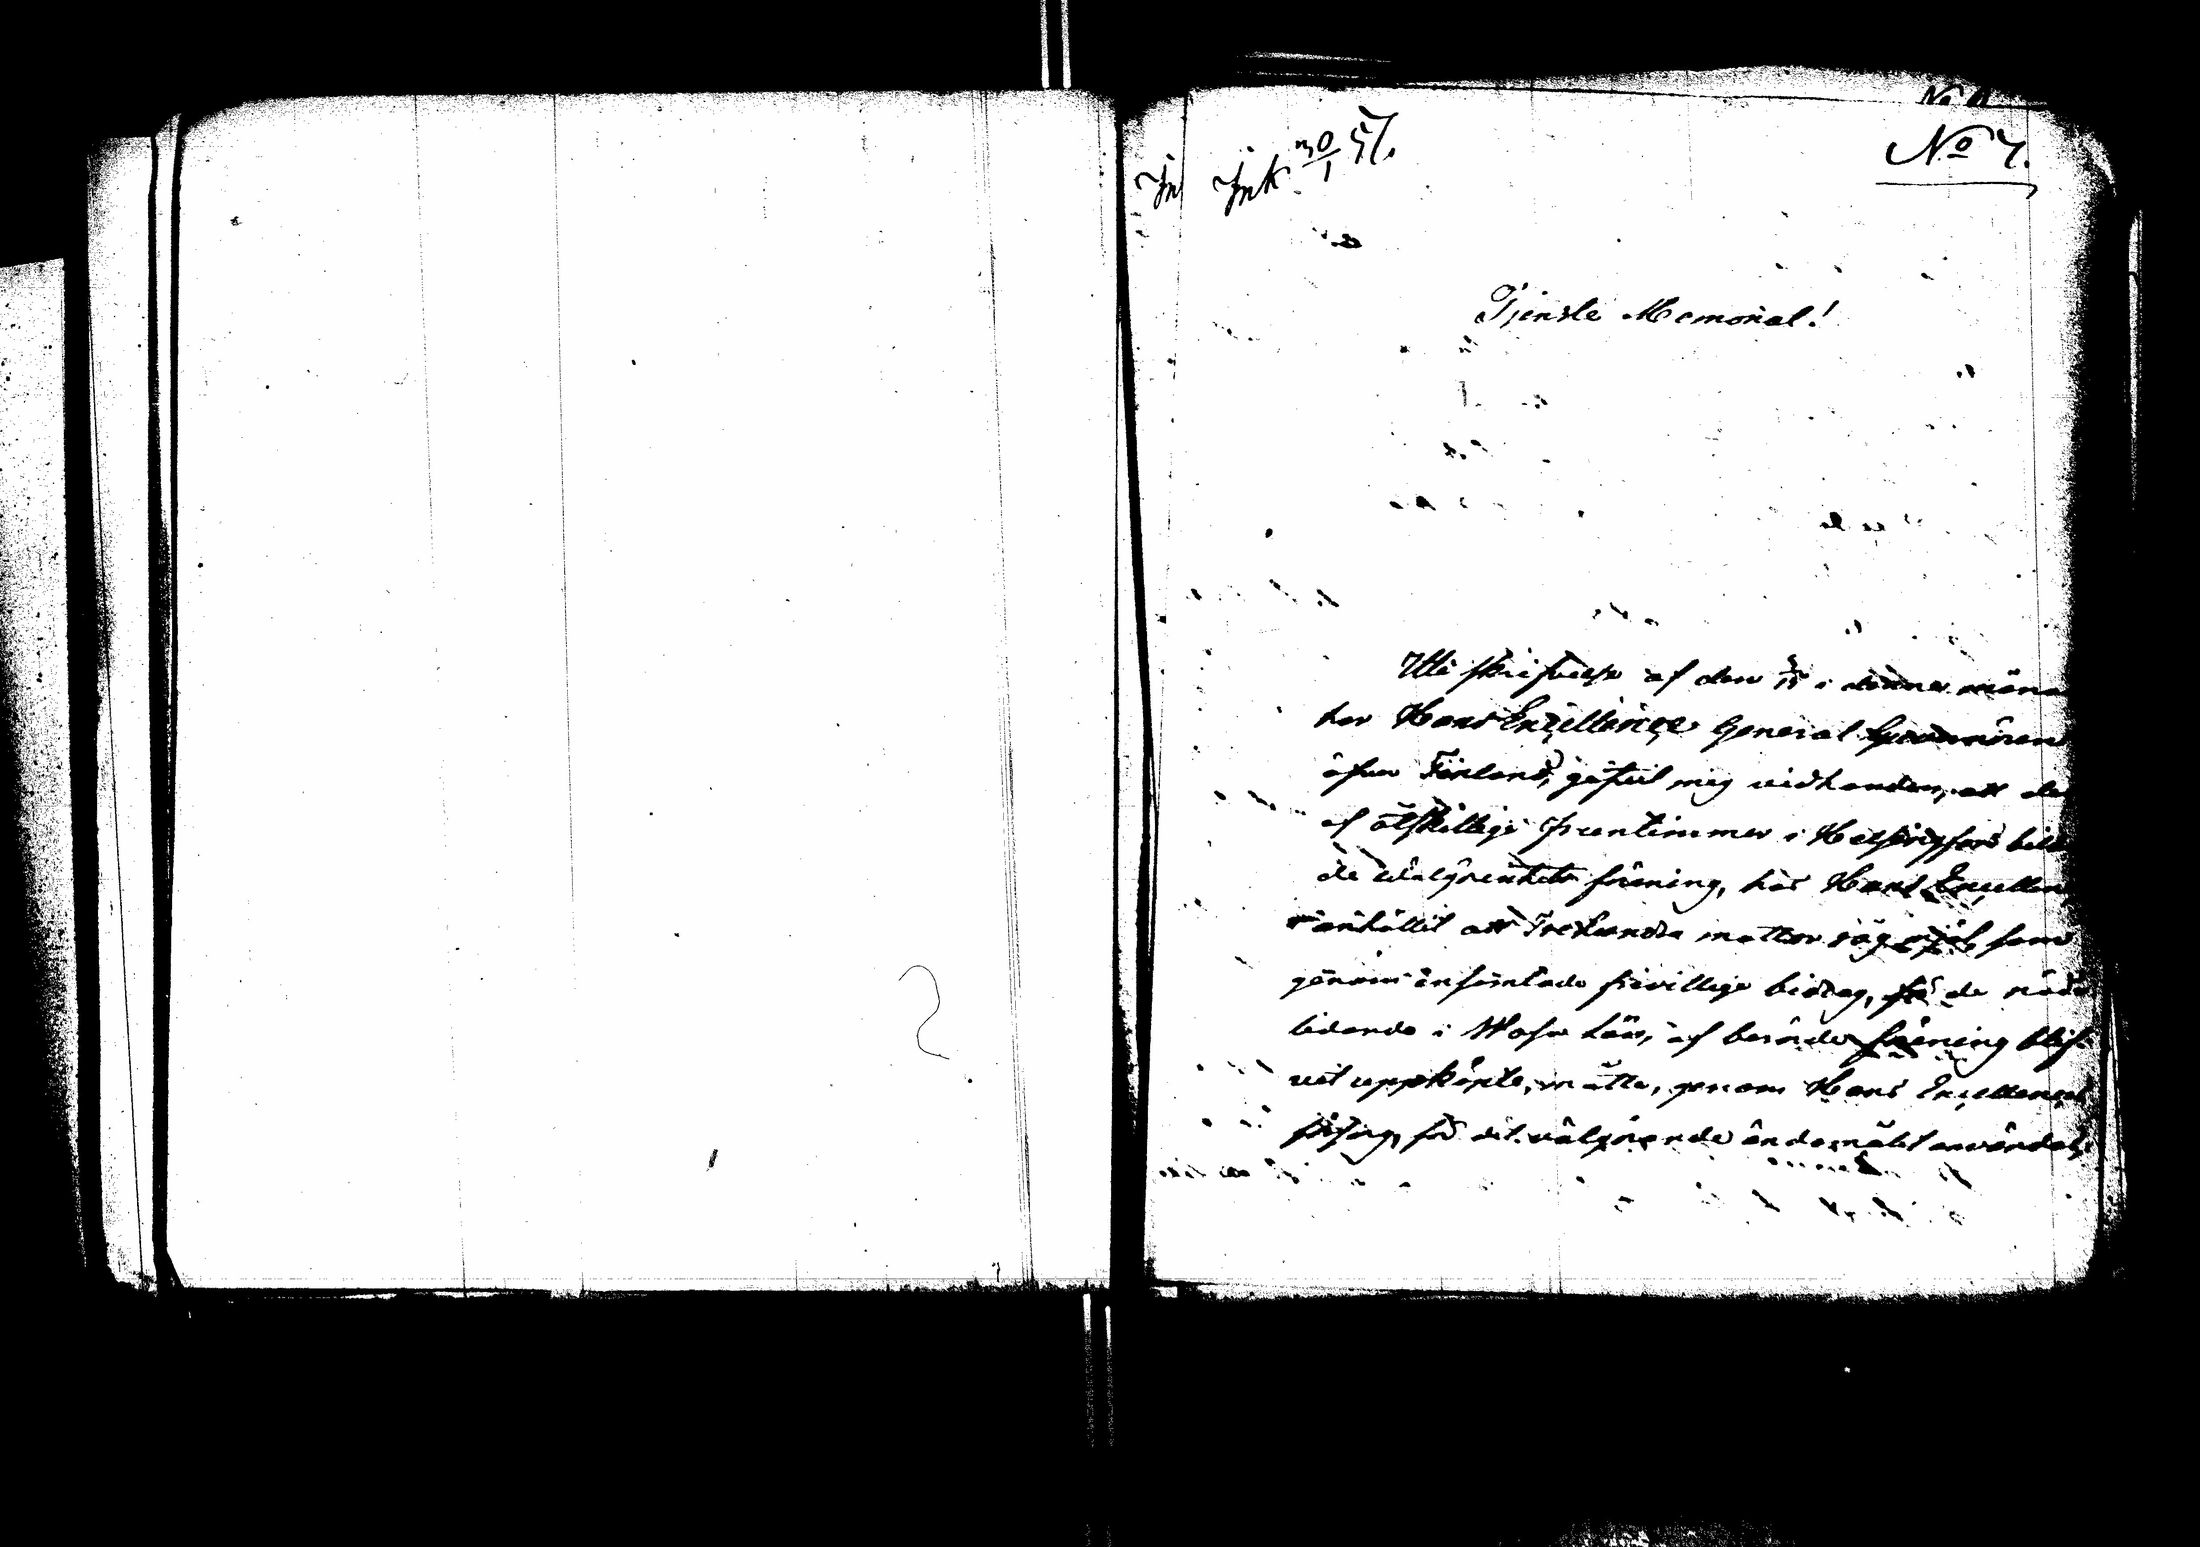 No 7.
Ink 30/1 57.
Tjenste Memorial!
Uti skrifvelse af den 3/15 i denne måna
har Hans Excellence General Gouvernören
öfver Finland, gifvit mig vidhanden, att den
af åtskillige fruntimmer i Helsingfors bilda
de välgörenhets förening, hos Hans Excellen
ce anhållit att Trehundra mattor råg mjöl, som
genom insamlade frivillige bidrag, för de nöd
lidande i Wasa län, af berörde förening blif-
vit uppköpte, måtte, genom Hans Excellences
försorg, för det välgörande ändamålet användas,